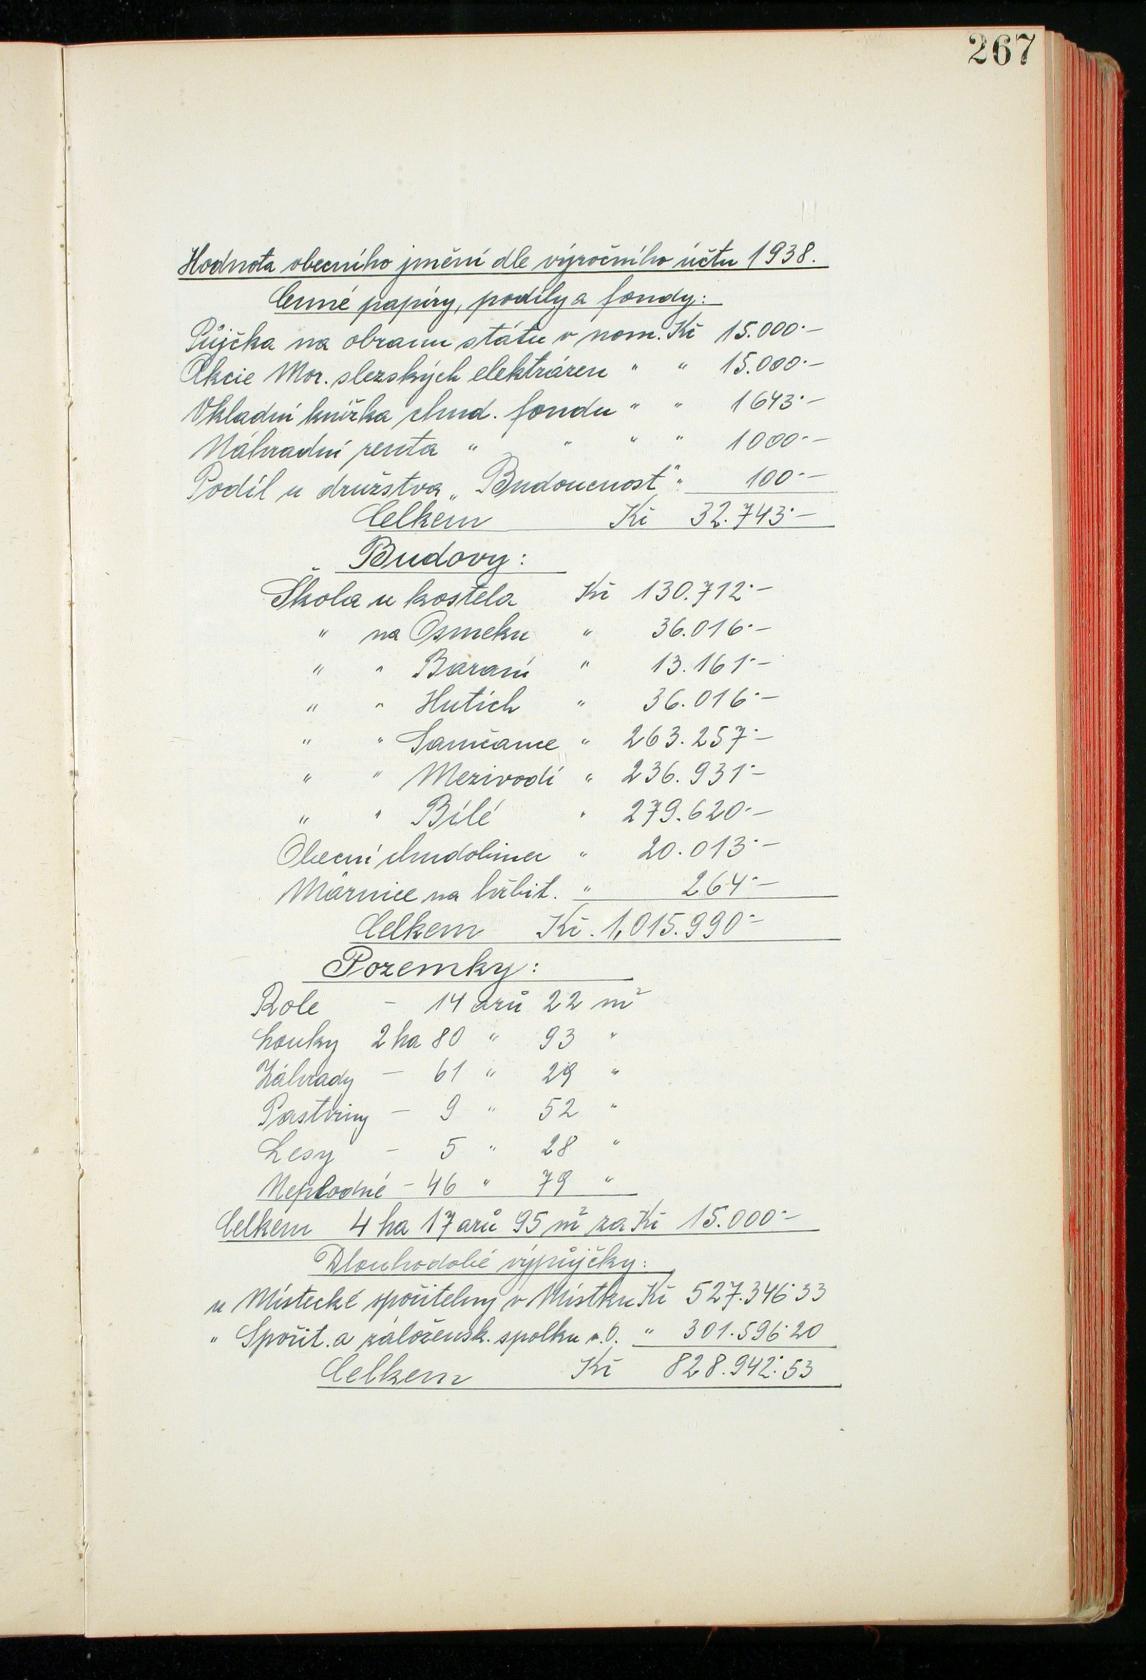 267
Hodnota obecního jmění dle výročního účtu 1938.
Cenné papíry, podíly a fondy:
Půjčka na obranu státu v nom. Kč 15.000·–
Akcie Mor. slezských elektráren " " 15.000·–
Vkladní knížka chud. fondu " " 1643·–
Náhradní renta " " " " 1000·–
Podíl u družstva „Budoucnost" " 100·–
Celkem Kč 32.743·–
Budovy:
Škola u kostela Kč 130.712·–
" na Osmeku " 36.016·–
" " Baraní " 13.161·–
" " Hutích " 36.016·–
" " Samčance " 263.257·–
" " Mezivodí " 236.931·–
" " Bílé " 279.620·–
Obecní chudobinec " 20.013·–
Márnice na hřbit. " 264·–
Celkem Kč. 1,015.990·–
Pozemky:
Role – 14 arů 22 m²
Louky 2 ha 80 " 93 "
Záhrady – 61 " 29 "
Pastviny – 9 " 52 "
Lesy – 5 " 28 "
Neplodné – 46 " 79 "
Celkem 4 ha 17 arů 95 m² za Kč 15.000·–
Dlouhodobé výpůjčky:
u Místecké spořitelny v Místku Kč 527.346·33
" Spořit. a záložensk. spolku v. O. " 301.596·20
Celkem Kč 828.942·53